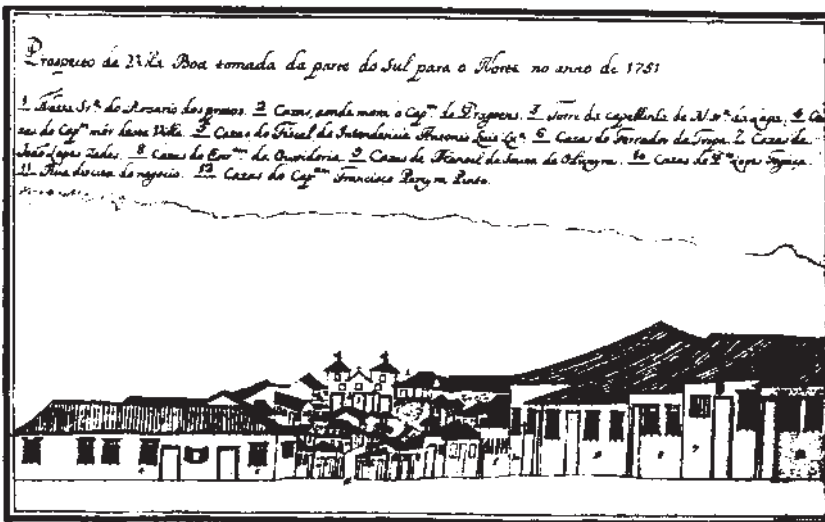 Prospeto de Villa Boa tomada da parte do Sul para o Norte no anno de 1751
1 Nossa Sr.ª do Rozario dos pretos. 2 Cazas, aonde mora o Cap.am de Dragoens. 3 Torre da capellinha de N. Sr.ª da Lapa. 4 Ca
zas do Cap.am mór desta Villa. 5 Cazas do Fiscal da Intendencia Antonio Luis 6 Cazas do Ferrador da Tropa. 7 Cazas de
João Lopes 8 Cazas do da Ouvidoria. 9 Cazas de Manoel de Souza de 10 Cazas de Lopes
11 Rua do negocio. 12 Cazas do Cap.am Francisco Pinto.